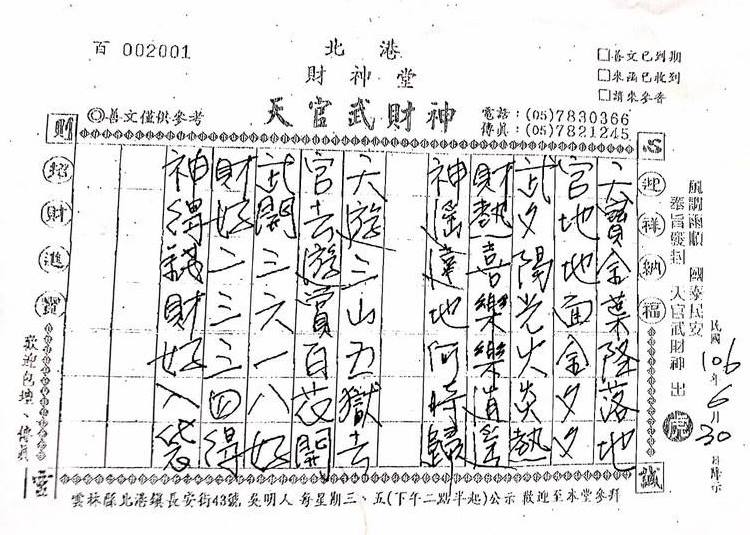 百 002001
北港
財神堂
天官武財神
◎善文僅供參考
□善文已到期
□來函已收到
□請來參香
電話:(05)7830366
傳真:(05)7821245
風調雨順 國泰民安
奉旨發封 天官武財神 出
民國106年6月30日降示
心
迎祥納福
誠
天寶金葉降落地
官地地面金夕夕
武夕陽光火炎熱
財熱喜樂樂逍遙
神遙達地何時歸
天遊三山五獄去
官去遊賞百花開
武開三六一八好
財好二三三四得
神得錢財好入袋
財
招財進寶
靈
雲林縣北港鎮長安街43號 吳明人 每星期三、五(下午二點半起)公示 歡迎至本堂參拜